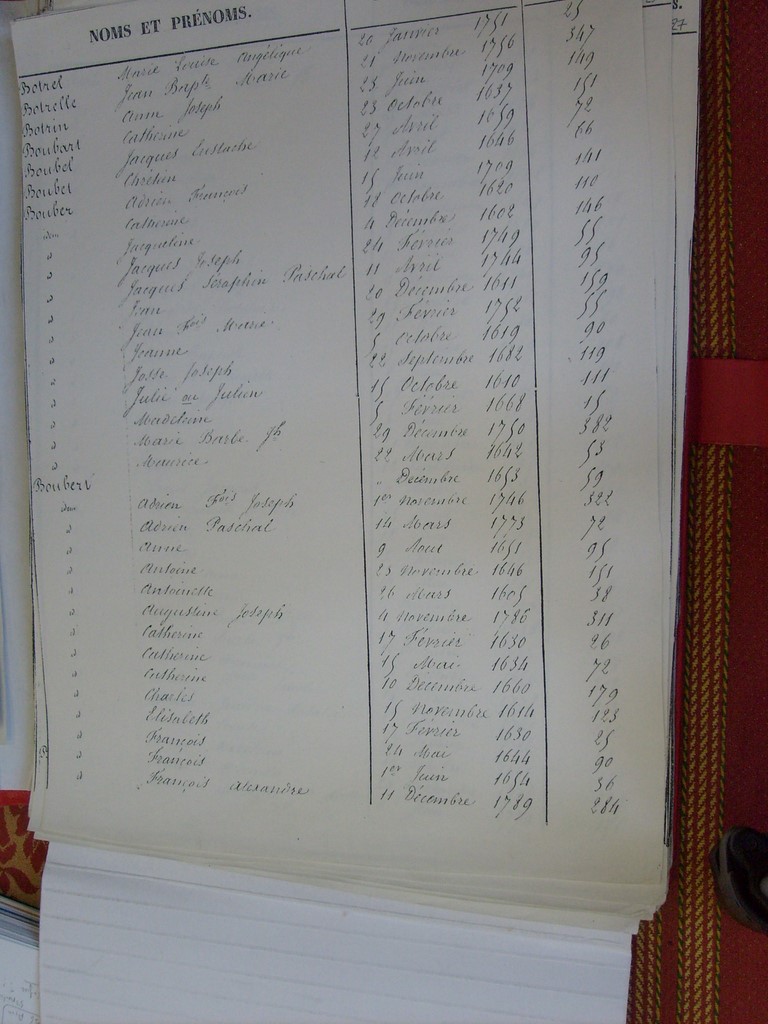 NOMS ET PRÉNOMS.
Botrel Marie Louise Angélique 20 Janvier 1751 25
Botrelle Jean Bapte Marie 21 Novembre 1756 347
Botrin Anne Joseph 23 Juin 1709 149
Boubart Catherine 23 Octobre 1637 151
Boubel Jacques Eustache 27 Avril 1659 72
Boubet Chrétien 12 Avril 1646 66
Bouber Adrien François 15 Juin 1709 141
idem Catherine 12 Octobre 1620 110
" Jacqueline 4 Décembre 1602 146
" Jacques Joseph 24 Février 1749 55
" Jacques Séraphin Paschal 11 Avril 1744 95
" Jean 20 Décembre 1611 159
" Jean Fois Marie 29 Février 1752 55
" Jeanne 5 Octobre 1619 90
" Josse Joseph 22 Septembre 1682 119
" Julie ou Julien 15 Octobre 1610 111
" Madeleine 5 Février 1668 15
" Marie Barbe Jh 29 Décembre 1750 382
" Maurice 22 Mars 1642 53
Boubert " Décembre 1653 59
idem Adrien Fois Joseph 1er Novembre 1746 322
" Adrien Paschal 14 Mars 1773 72
" Anne 9 Aout 1651 95
" Antoine 23 Novembre 1646 151
" Antoinette 26 Mars 1605 38
" Augustine Joseph 4 Novembre 1786 311
" Catherine 17 Février 1630 26
" Catherine 15 Mai 1634 72
" Catherine 10 Décembre 1660 179
" Charles 15 Novembre 1614 123
" Elisabeth 17 Février 1630 25
" François 24 Mai 1644 90
" François 1er Juin 1654 36
" François Alexandre 11 Décembre 1789 284